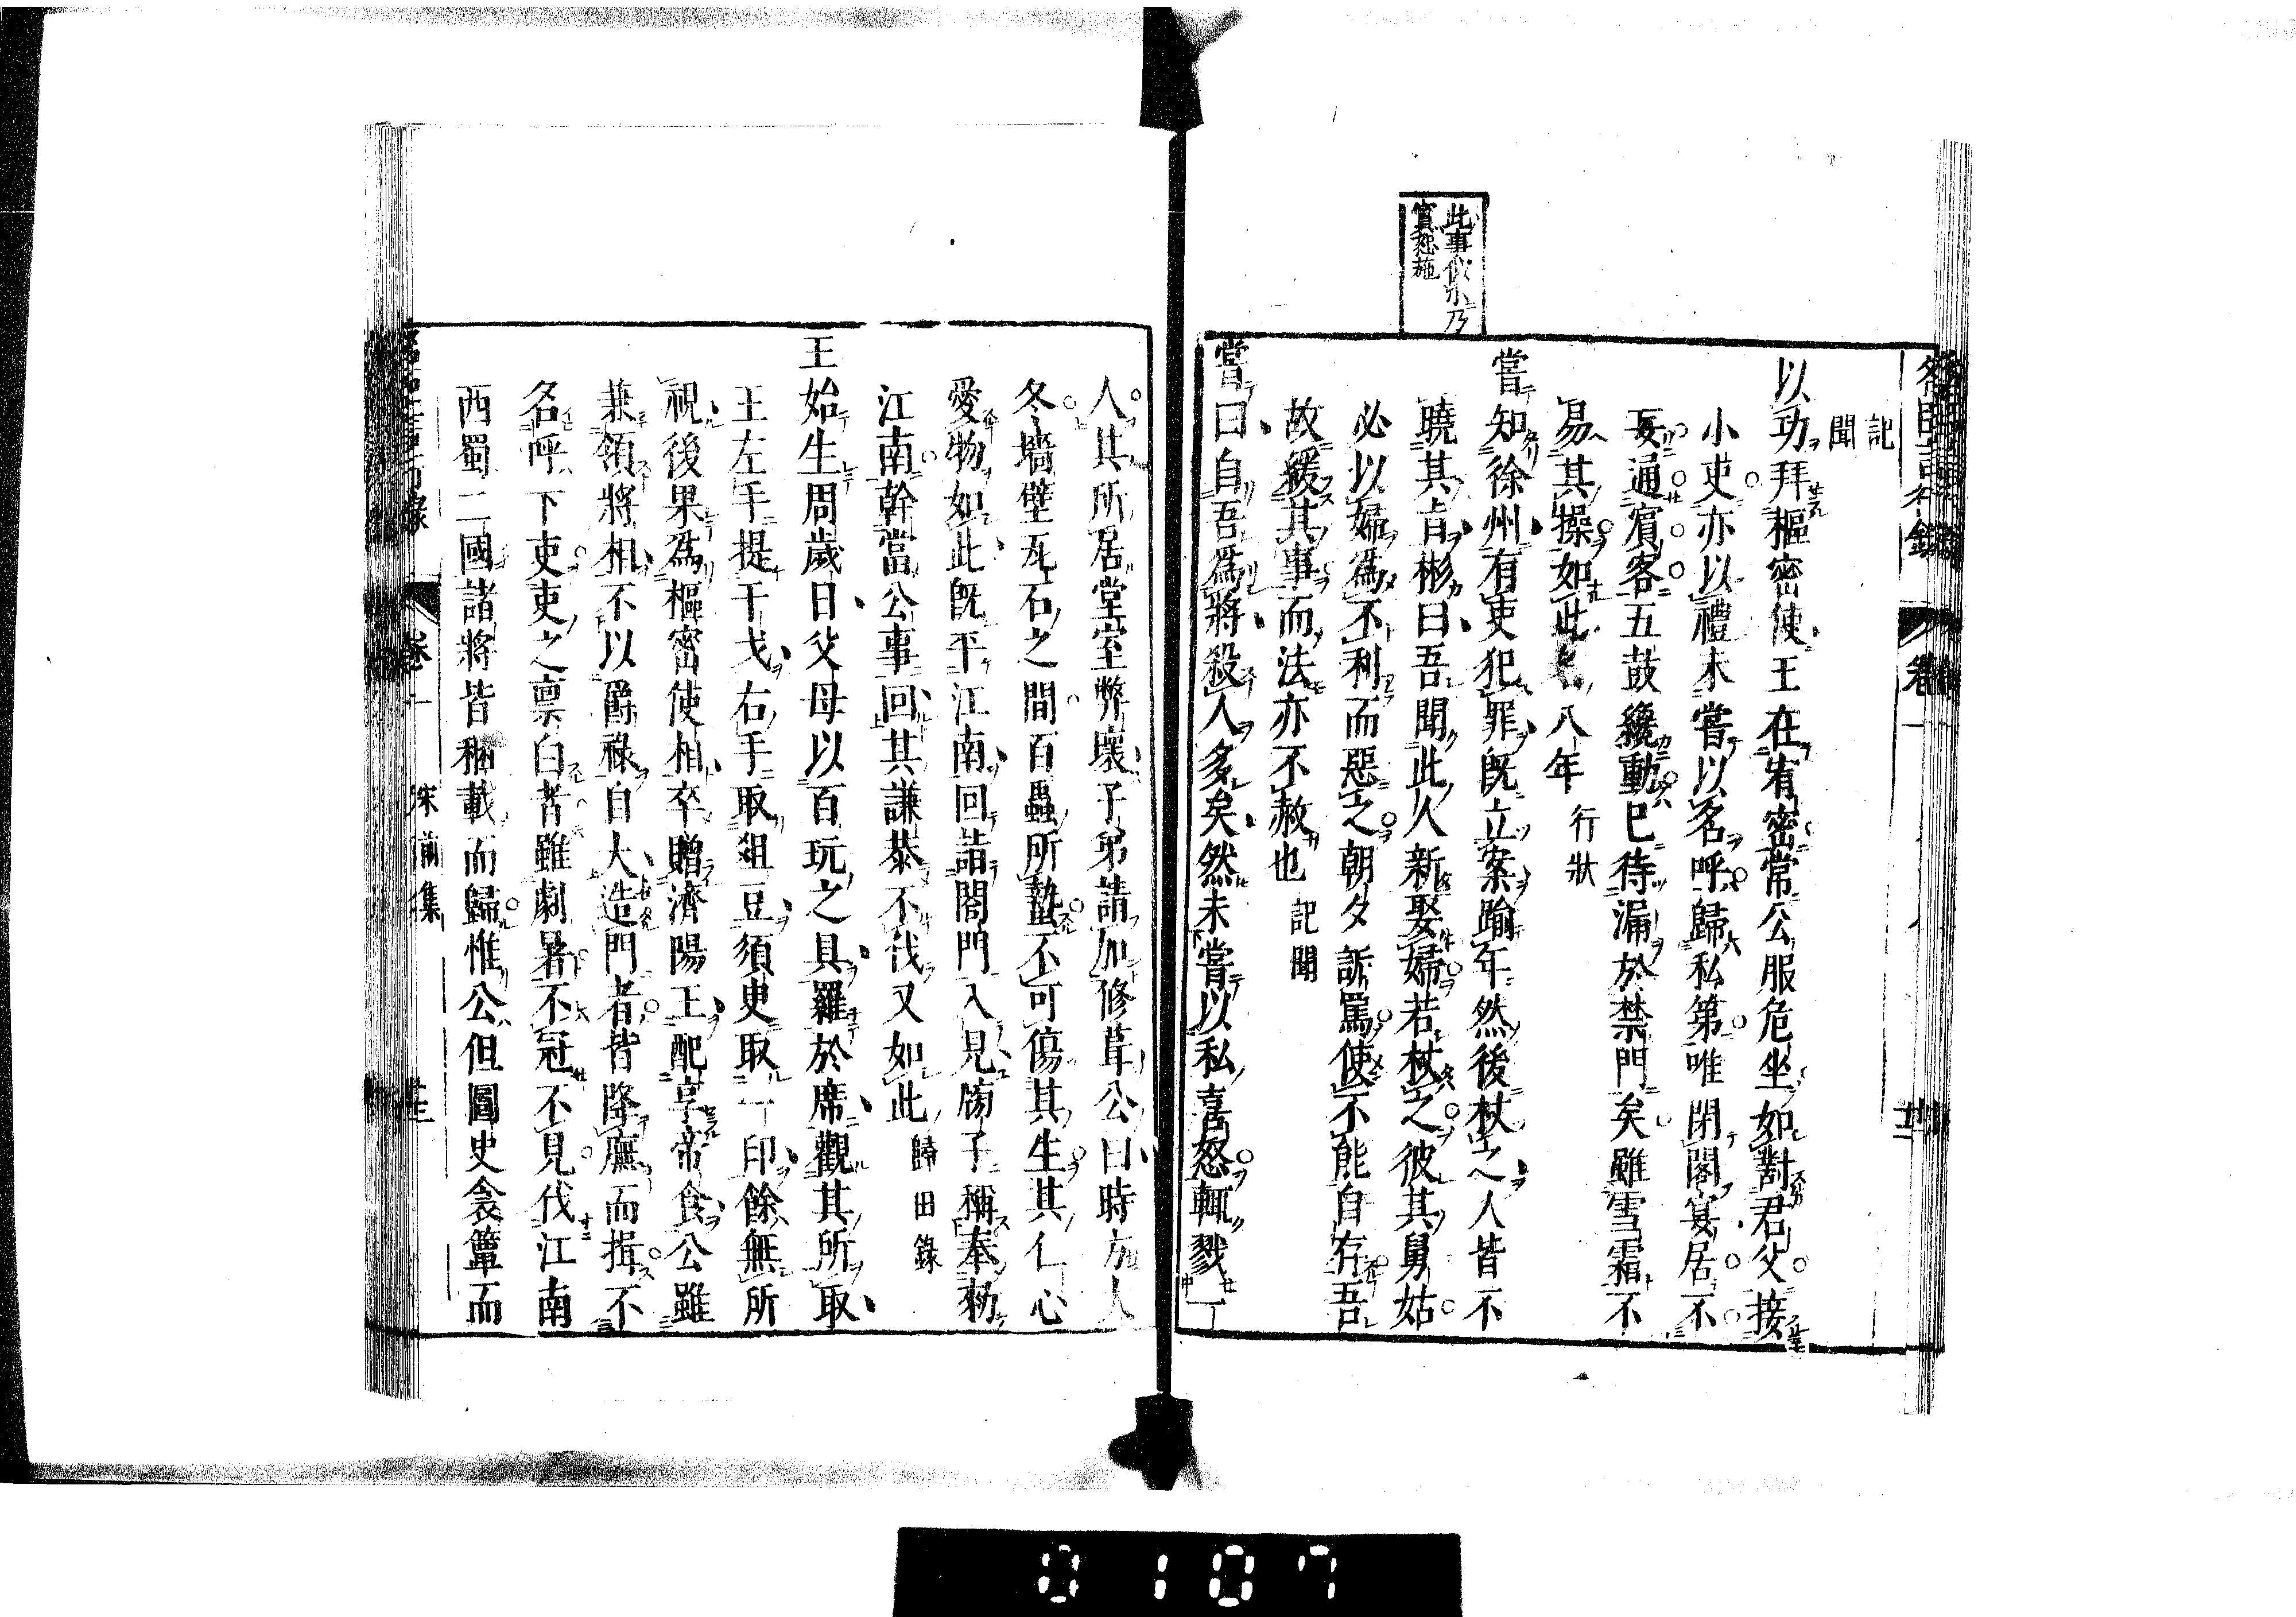 此事似小乃
實怨施
記
聞
以功拜樞密使王在宥密常公服危坐如對君父接
小吏亦以禮未嘗以名呼歸私第唯閉閣宴居不
妄通賓客五鼓纔動已待漏於禁門矣雖雪霜不
易其操如此 八年 行狀
嘗知徐州有吏犯罪既立案踰年然後杖之人皆不
曉其旨彬曰吾聞此人新娶婦若杖之彼其舅姑
必以婦爲不利而惡之朝夕訴罵使不能自存吾
故緩其事而法亦不赦也 記聞
嘗曰自吾爲將殺人多矣然未嘗以私喜怒輒戮一
人其所居堂室弊壞子弟請加修葺公曰時方大
冬墻壁瓦石之間百蟲所蟄不可傷其生其仁心
愛物如此既平江南回詣閤門入見牓子稱奉勑
江南幹當公事回其謙恭不伐又如此 歸田錄
王始生周歲日父母以百玩之具羅於席觀其所取
王左手提干戈右手取俎豆須吏取一印餘無所
視後果爲樞密使相卒贈濟陽王配享帝食公雖
兼領將相不以爵祿自大造門者皆降廡而揖不
名呼下吏吏之稟白者雖劇暑不冠不見伐江南
西蜀二國諸將皆稛載而歸惟公但圖史衾簟而
卷一 宋前集